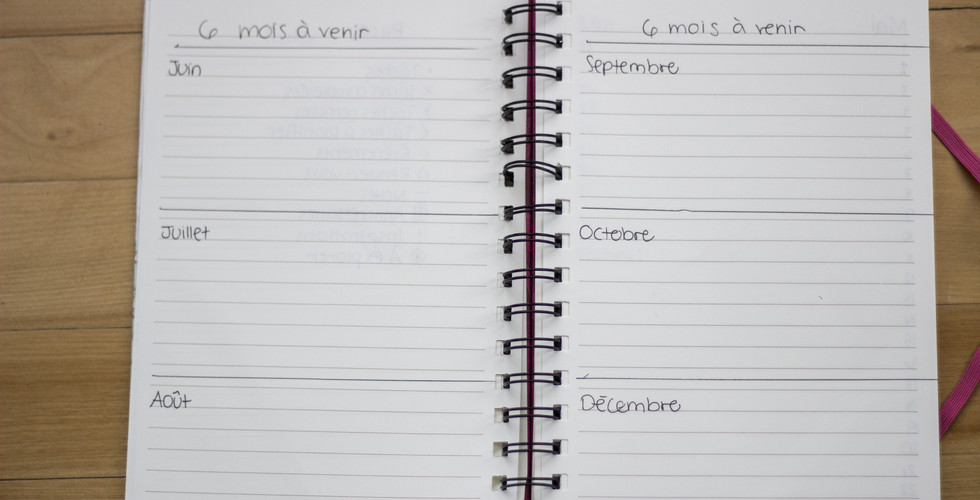 6 mois à venir
Juin
Juillet
Août
6 mois à venir
Septembre
Octobre
Décembre